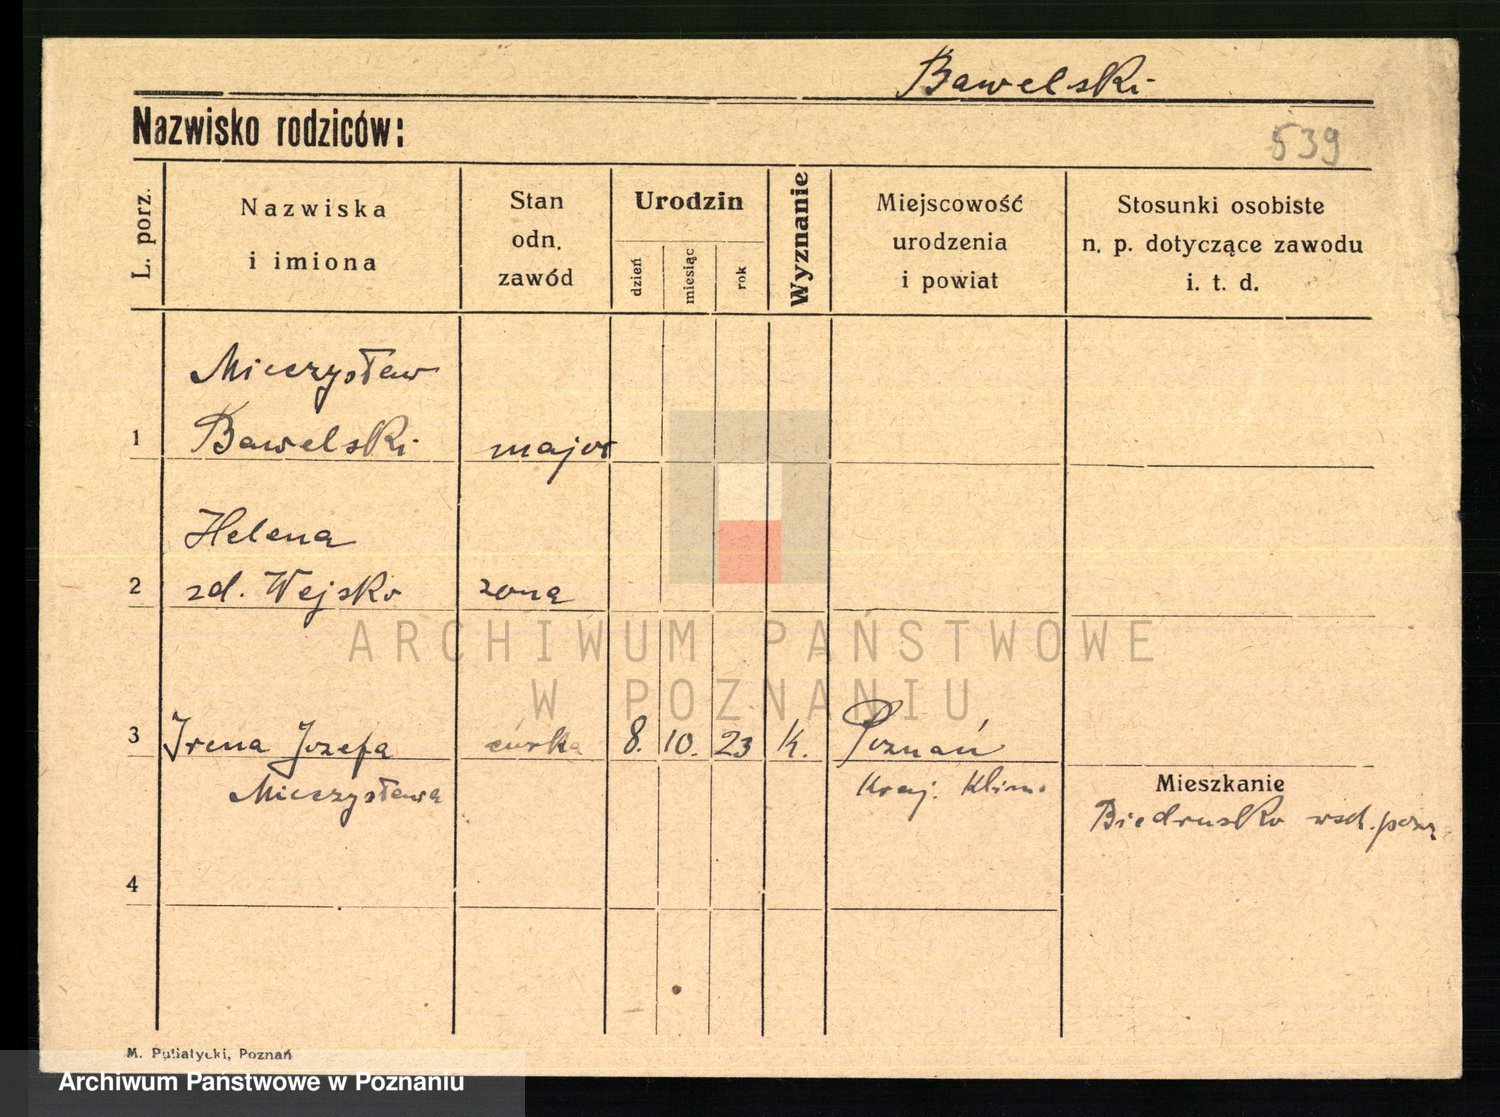 Bawelski
Nazwisko rodziców:
539
L. porz.
Nazwiska
i imiona
Stan
odn.
zawód
Urodzin
dzień
miesiąc
rok
Wyznanie
Miejscowość
urodzenia
i powiat
Stosunki osobiste
n. p. dotyczące zawodu
i. t. d.
Mieczysław
1 Bawelski major
Helena
2 zd. Wejsko żona
ARCHIWUM PAŃSTWOWE
W POZNANIU
3 Irena Józefa córka 8. 10. 23 k. Poznań
Mieczysława
Kraj. Klin.
Mieszkanie
Biedrusko wsch.
4
M. Puliatycki, Poznań
Archiwum Państwowe w Poznaniu